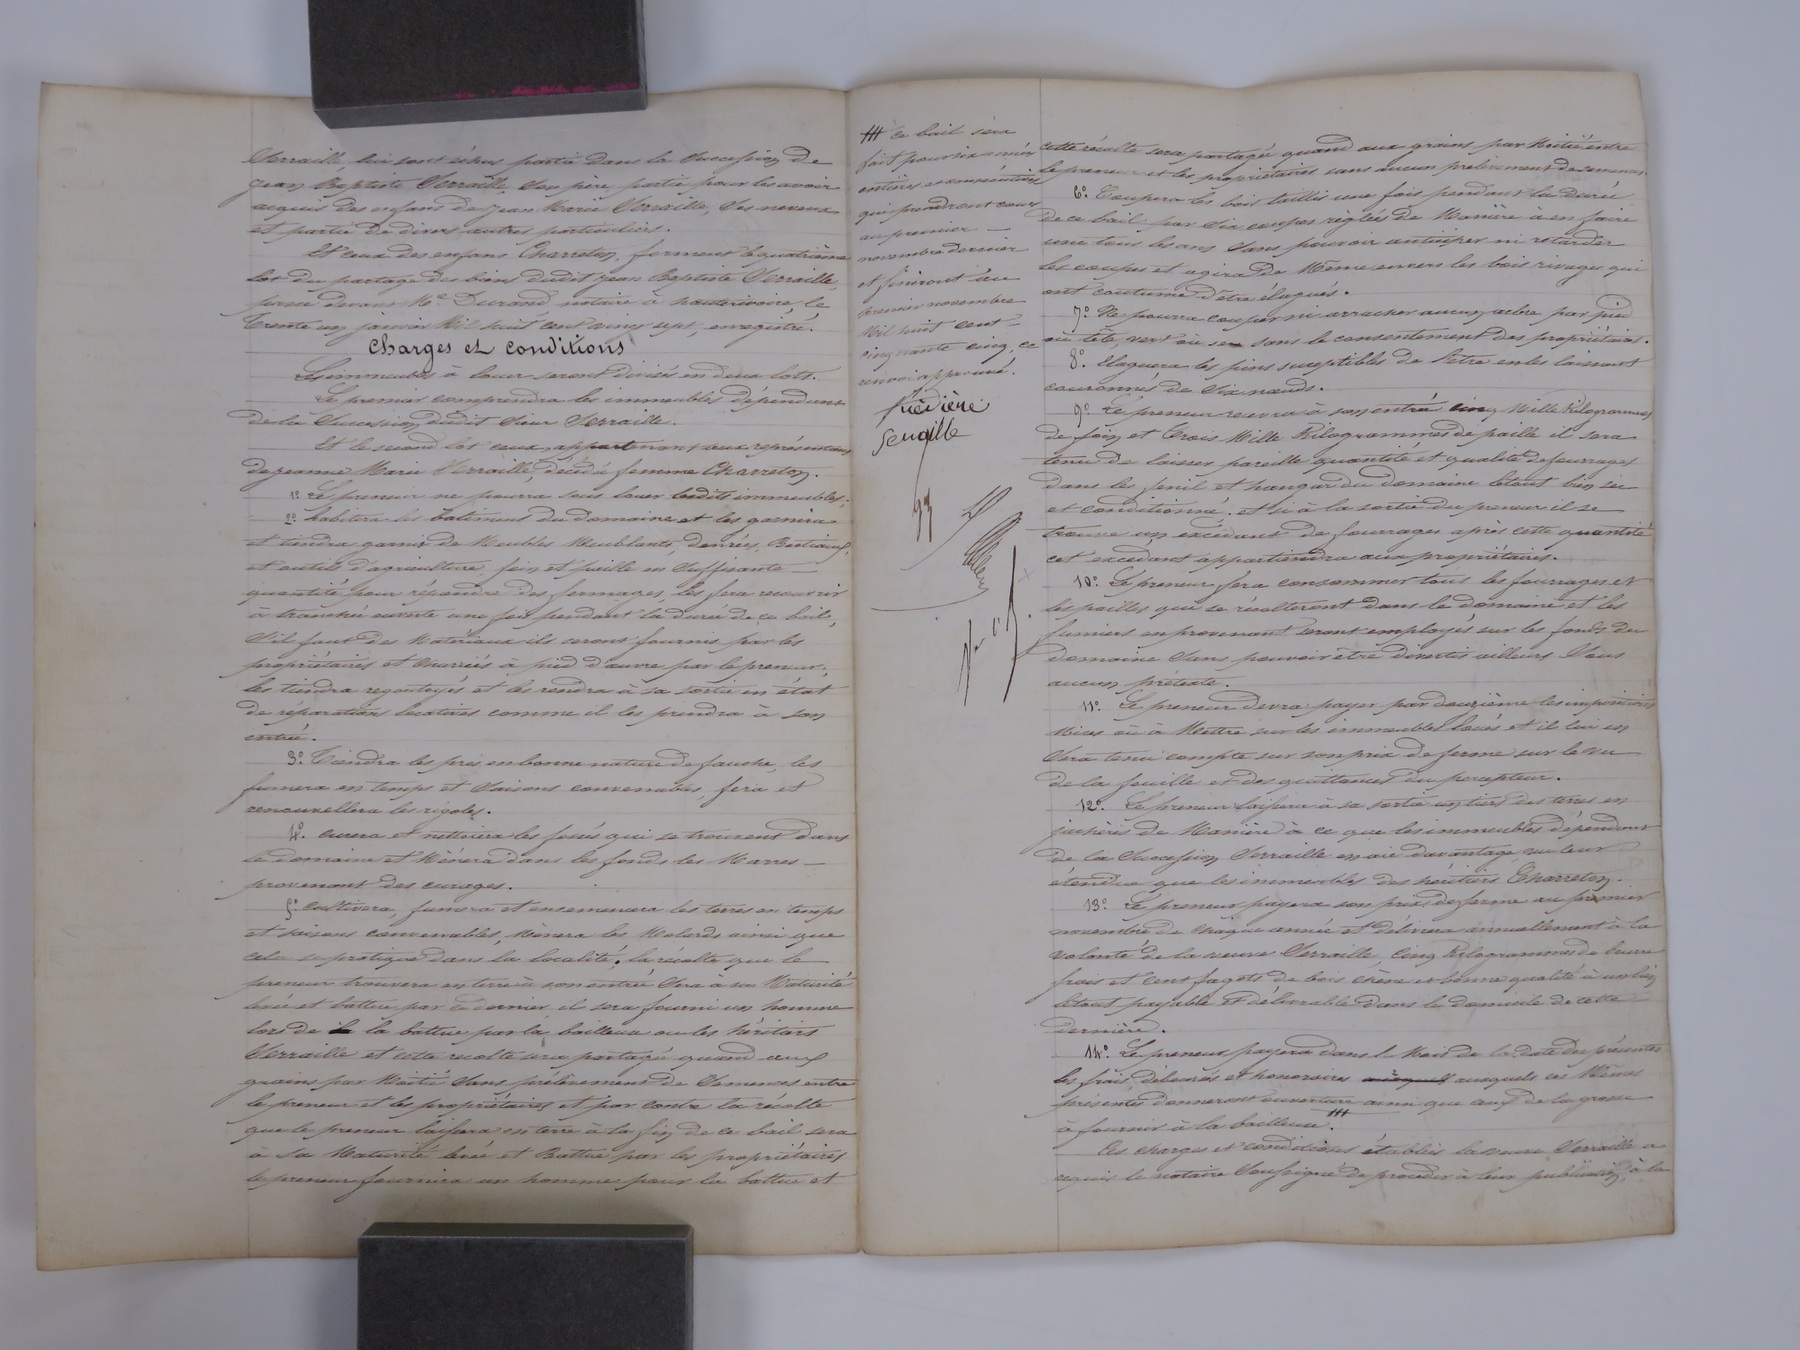 Serraille lui sont échus partie dans la succession de
Jean Baptiste Serraille, son père, partie pour les avoir
acquis des enfans de Jean Marie Serraille, ses neveux
et partie de divers autres particuliers.
Et ceux des enfans Charreton, forment le quatrième
lot du partage des biens dudit Jean Baptiste Serraille,
passé devant Me Durand notaire à hauterivoire, le
trente un janvier Mil huit cent vingt sept, enregistré.
Charges et conditions
Les immeubles à louer seront divisés en deux lots.
Le premier comprendra les immeubles dépendant
de la succession dudit sieur Serraille.
Et le second lot ceux appartenant aux représentans
de jeanne Marie Serraille, décédée femme Charreton.
1o Le preneur ne pourra sous louer lesdits immeubles;
2o habitera les batimens du domaine et les garnira
et tiendra garnis de Meubles Meublants, denrées, Bestiaux,
et outils d'agriculture, foin et paille en suffisante
quantité pour répondre des fermages, les fera recouvrir
à tranchée ouverte une fois pendant la durée de ce bail,
s'il faut des Matériaux ils seront fournis par les
propriétaires et charriés à pied d'œuvre par le preneur;
les tiendra regoutoyés et les rendra à sa sortie en état
de réparations locatives comme il les prendra à son
entrée.
3o Tiendra les prés en bonne nature de fauche, les
fumera en temps et saisons convenables, fera et
renouvellera les rigoles.
4o curera et nettoiera les fossés qui se trouvent dans
le domaine et Mènera dans les fonds les Marres
provenant des curages.
5o cultivera, fumera et ensemencera les terres en temps
et saisons convenables, Mènera les ainsi que
cela se pratique dans la localité; la récolte que le
preneur trouvera en terre à son entrée sera à sa Maturité
levée et battue par ce dernier, il sera fourni un homme
lors de la battue par les bailleux ou les héritiers
Serraille et cette récolte sera partagée quand aux
grains par Moitié sans prélèvement de semences entre
le preneur et les propriétaires et par contre la récolte
que le preneur laissera en terre à la fin de ce bail sera
à sa Maturité levée et Battue par les propriétaires
le preneur fournira un homme pour la battue et
ce bail sera
fait pour six années
entières et consécutives
qui prendront cours
au premier
novembre dernier
et finiront au
premier novembre
Mil huit cent
cinquante cinq, ce
renvoi approuvé.
cette récolte sera partagée quand aux grains par Moitié entre
le preneur et les propriétaires sans aucun prélèvement de semences.
6o Coupera les bois taillis une fois pendant la durée
de ce bail par six coupes réglées de Manière à en faire
une tous les ans sans pouvoir anticiper ni retarder
les coupes et agira de Même envers les bois rivages qui
ont coutume d'être élagués.
7o Ne pourra couper ni arracher aucun arbre par pied
ou tête, vert ou sec sans le consentement des propriétaires.
8o Elaguera les pins susceptibles de l'être en les laissant
couronnés de six nœuds.
9o Le preneur recevra à son entrée cinq Mille Kilogrammes
de foin et trois Mille Kilogrammes de paille il sera
tenu de laisser pareille quantité et qualité de fourrages
dans le fenil et hangar du domaine letout bien sec
et conditionné. et si à la sortie du preneur il se
trouve un excédant de fourrages après cette quantité
cet excédant appartiendra aux propriétaires.
10o Le preneur fera consommer tous les fourrages et
les pailles qui se récolteront dans le domaine et les
fumiers en provenant seront employés sur les fonds du
domaine sans pouvoir être divertis ailleurs sous
aucun prétexte.
11o Le preneur devra payer par douzième les impositions
Mises ou à Mettre sur les immeubles loués et il lui en
sera tenu compte sur son prix de ferme sur le vu
de la feuille et des quittances du percepteur.
12o Le preneur laissera à sa sortie un tiers des terres en
jachères de Manière à ce que les immeubles dépendant
de la succession Serraille en aie davantage vu leur
étendue que les immeubles des héritiers Charreton.
13o Le preneur payera son prix de ferme au premier
novembre de chaque année et délivrera annuellement à la
volonté de la veuve Serraille, cinq Kilogrammes de beurre
frais et cent fagots de bois chêne et bonne qualité à un lien
letout payable et délivrable dans le domicile de cette
dernière.
14o Le preneur payera dans le Mois de la date des présentes
les frais, déboursés et honoraires auxquels ces Mêmes
présentes donneront ouverture ainsi que ceux de la grosse
à fournir à la bailleuse.
Ces charges et conditions établies la veuve Serraille a
requis le notaire soussigné de procéder à leur publication, à la